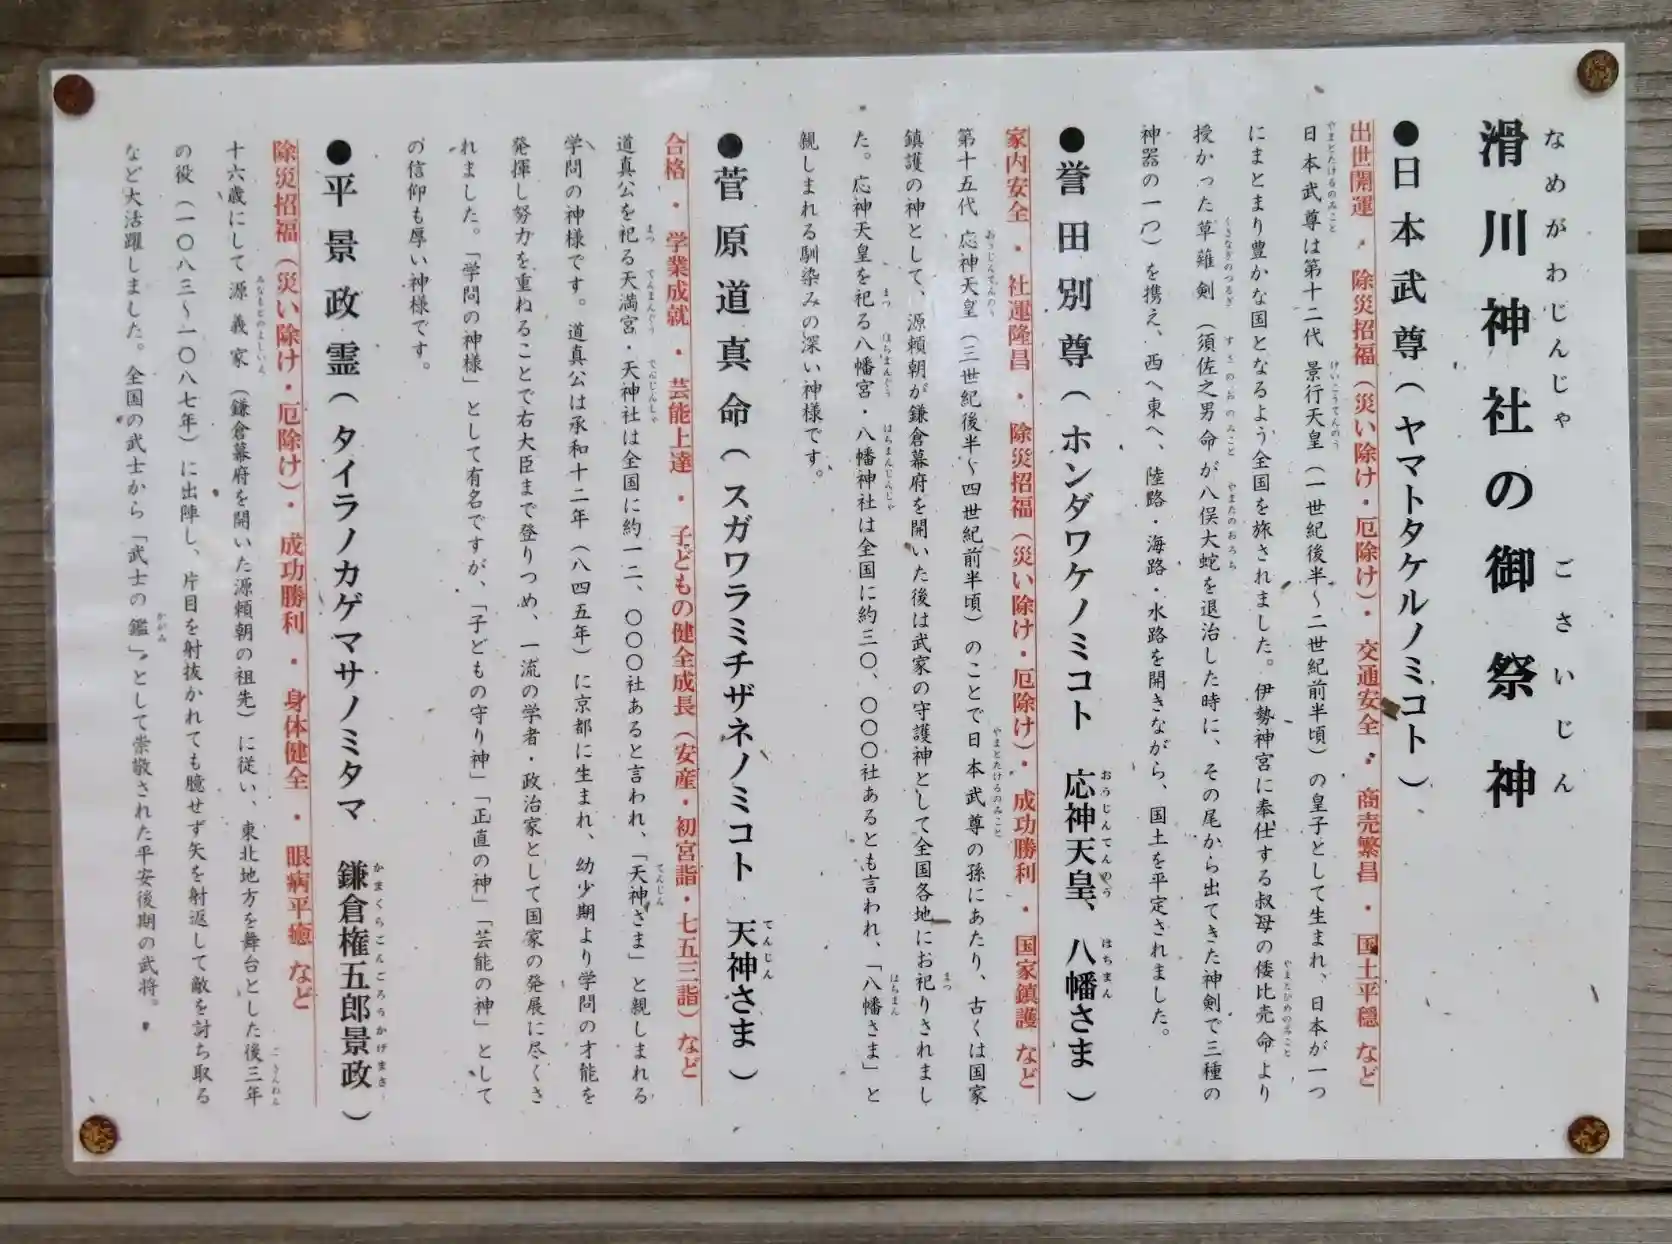 滑川神社の御祭神
なめがわじんじゃ　ごさいじん
●日本武尊（ヤマトタケルノミコト）
出世開運・除災招福（災い除け・厄除け）・交通安全・商売繁昌・国土平穏 など
日本武尊は第十二代 景行天皇（一世紀後半～二世紀前半頃）の皇子として生まれ、日本が一つ
やまとたけるのみこと　けいこうてんのう
にまとまり豊かな国となるよう全国を旅されました。伊勢神宮に奉仕する叔母の倭比売命より
やまとひめのみこと
授かった草薙剣（須佐之男命が八俣大蛇を退治した時に、その尾から出てきた神剣で三種の
くさなぎのつるぎ　すさのおのみこと　やまたのおろち
神器の一つ）を携え、西へ東へ、陸路・海路・水路を開きながら、国土を平定されました。
●誉田別尊（ホンダワケノミコト　応神天皇、八幡さま）
おうじんてんのう　はちまん
家内安全・社運隆昌・除災招福（災い除け・厄除け）・成功勝利・国家鎮護 など
第十五代 応神天皇（三世紀後半～四世紀前半頃）のことで日本武尊の孫にあたり、古くは国家
おうじんてんのう　やまとたけるのみこと
鎮護の神として、源頼朝が鎌倉幕府を開いた後は武家の守護神として全国各地にお祀りされまし
まつ
た。応神天皇を祀る八幡宮・八幡神社は全国に約三〇、〇〇〇社あるとも言われ、「八幡さま」と
まつ　はちまんぐう　はちまんじんじゃ　はちまん
親しまれる馴染みの深い神様です。
●菅原道真命（スガワラミチザネノミコト　天神さま）
てんじん
合格・学業成就・芸能上達・子どもの健全成長（安産・初宮詣・七五三詣）など
道真公を祀る天満宮・天神社は全国に約一二、〇〇〇社あると言われ、「天神さま」と親しまれる
まつ　てんまんぐう　てんじんしゃ　てんじん
学問の神様です。道真公は承和十二年（八四五年）に京都に生まれ、幼少期より学問の才能を
発揮し努力を重ねることで右大臣まで登りつめ、一流の学者・政治家として国家の発展に尽くさ
れました。「学問の神様」として有名ですが、「子どもの守り神」「正直の神」「芸能の神」として
の信仰も厚い神様です。
●平景政霊（タイラノカゲマサノミタマ　鎌倉権五郎景政）
かまくらごんごろうかげまさ
除災招福（災い除け・厄除け）・成功勝利・身体健全・眼病平癒 など
十六歳にして源義家（鎌倉幕府を開いた源頼朝の祖先）に従い、東北地方を舞台とした後三年
みなもとのよしいえ　ごさんねん
の役（一〇八三～一〇八七年）に出陣し、片目を射抜かれても臆せず矢を射返して敵を討ち取る
など大活躍しました。全国の武士から「武士の鑑」として崇敬された平安後期の武将。
かがみ